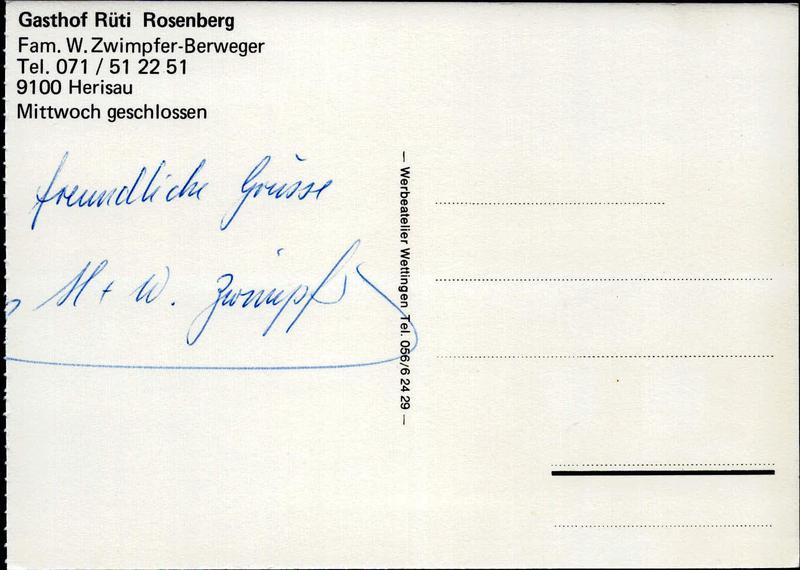 Gasthof Rüti Rosenberg
Fam. W. Zwimpfer-Berweger
Tel. 071 / 51 22 51
9100 Herisau
Mittwoch geschlossen
freundliche Grüsse
M + W. Zwimpfer
— Werbeatelier Wettingen Tel. 056/6 24 29 —